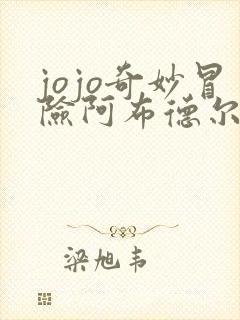 jojo奇妙冒
险阿布德尔
梁旭韦